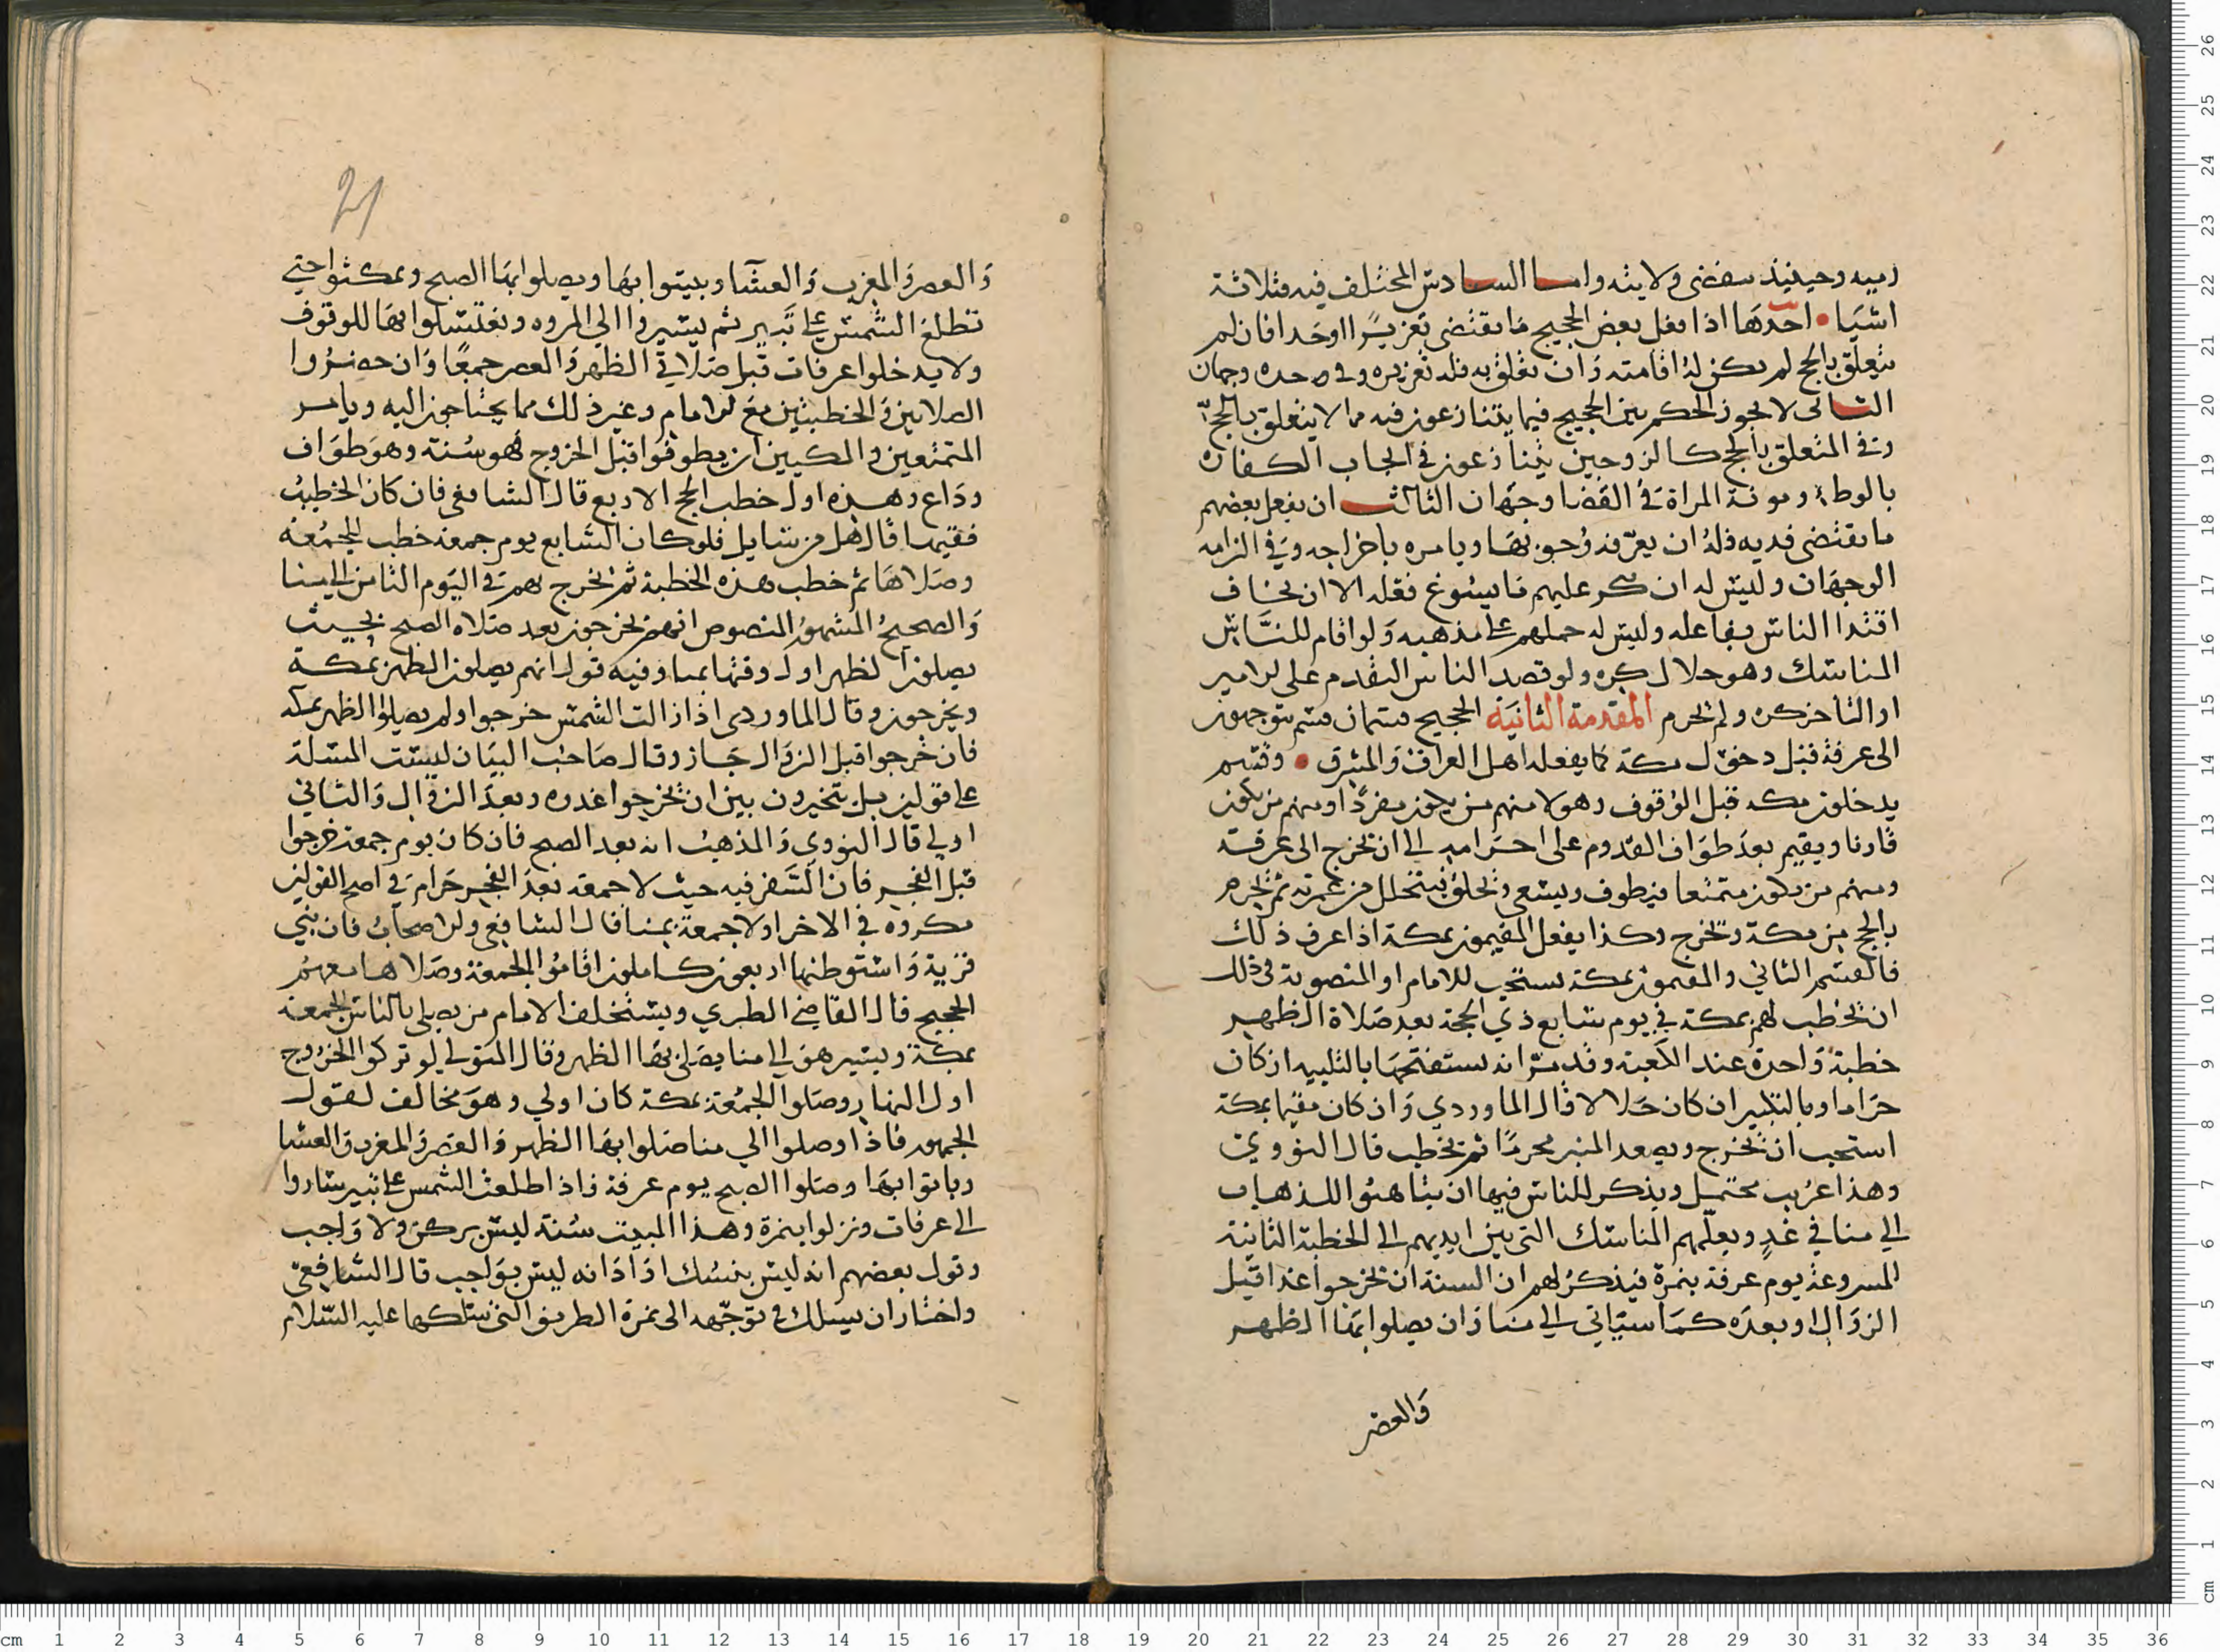 رميه وحينيذ سقضى ولايته واما السادس المختلف فيه فثلاثة
اشيا • احدها اذا فعل بعض الحجيج ما يقتضى تعزيرًا او حدا فان لم
يتعلق بالحج لم يكن له اقامته وان تعلق به فله تعزيره وفى حده وجهان
الثانى لا يجوز الحكم بين الحجيج فيما يتنازعون فيه مما لا يتعلق بالحج
وفى المتعلق بالحج كالزوجين يتنازعون في ايجاب الكفاره
بالوطء ومونة المراة في القضا وجهان الثالث ان يفعل بعضهم
ما يقتضى فديه فله ان يعرفه وجوبها ويامره باخراجه وفي الزامه
الوجهان وليس له ان ينكر عليهم ما يسوغ فعله الا ان يخاف
اقتدا الناس بفاعله وليس له حملهم على مذهبه ولو اقام للناس
المناسك وهو حلال كره ولو قصد الناس التقدم على الامير
او التاخر كره ولم يحرم المقدمة الثانية الحجيج قسمان قسم يتوجهون
الى عرفة قبل دخول مكة كما يفعله اهل العراق والمشرق • وقسم
يدخلون مكه قبل الوقوف وهولا منهم من يكون مفردًا ومنهم من يكون
قارنا ويقيم بعد طواف القدوم على احرامه الى ان يخرج الى عرفة
ومنهم من يكون متمتعا فيطوف ويسعى ويحلق فيتحلل من عمرته ثم يحرم
بالحج من مكة ويخرج وكذا يفعل المقيمون بمكة اذا عرف ذلك
فالقسم الثاني والمقيمون بمكة يستحب للامام او المنصوبة فى ذلك
ان يخطب لهم بمكة في يوم سابع ذي الحجة بعد صلاة الظهر
خطبة واحدة عند الكعبة وقد مرّ انه يستفتحها بالتلبيه ان كان
حراما وبالتكبير ان كان حلالا قال الماوردي وان كان مقيما بمكة
استحب ان يخرج ويصعد المنبر محرمًا ثم يخطب قال النووي
وهذا غريب محتمل ويذكر للناس فيها ان يتاهبوا للذهاب
الي منا في غدٍ ويعلّمهم المناسك التى بين ايديهم الى الخطبة الثانية
المشروعة يوم عرفة بنمرة فيذكر لهم ان السنة ان يخرجوا غدا قبل
الزوال او بعده كما سياتى الى منا وان يصلوا بمنا الظهر
والعصر
21
والعصر والمغرب والعشا ويبيتوا بها ويصلوا بها الصبح ويمكثوا حتي
تطلع الشمس على ثبير ثم يسيروا الي المروه ويغتسلوا بها للوقوف
ولا يدخلوا عرفات قبل صلاتي الظهر والعصر جمعًا وان حضروا
الصلاتين والخطبتين مع الامام وغير ذلك مما يحتاجون اليه ويامر
المتمتعين والمكيين ان يطوفوا قبل الخروج فهو سنة وهو طواف
وداع وهذه اول خطب الحج الاربع قال الشافعي فان كان الخطيب
فقيها قال هل من سايل فلو كان السابع يوم جمعة خطب للجمعة
وصلاها ثم خطب هذه الخطبة ثم يخرج بهم في اليوم الثامن الى منا
والصحيح المشهور المنصوص انهم يخرجون بعد صلاه الصبح بحيث
يصلون الظهر اول وقتها بمنا وفيه قول انهم يصلون الظهر بمكة
ويخرجون وقال الماوردى اذا زالت الشمس خرجوا ولم يصلوا الظهر بمكه
فان خرجوا قبل الزوال جاز وقال صاحب البيان ليست المسئلة
على قولين بل يتخيرون بين ان يخرجوا غدوه وبعد الزوال والثاني
اولي قال النووي والمذهب انه بعد الصبح فان كان يوم جمعة خرجوا
قبل الفجر فان السفر فيه حيث لا جمعة بعد الفجر حرام في اصح القولين
مكروه في الاخر اولا جمعة بمنا قال الشافعي والاصحاب فان بني
قرية واستوطنها اربعون كاملون اقاموا الجمعة وصلاها معهم
الحجيج قال القاضي الطبري ويستخلف الامام من يصلى بالناس الجمعة
بمكة ويسير هو الي منا يصلى بها الظهر وقال المتولى لو تركوا الخروج
اول النهار وصلوا الجمعة بمكة كان اولي وهو مخالف لقول
الجمهور فاذا وصلوا الي منا صلوا بها الظهر والعصر والمغرب والعشا
وباتوا بها وصلوا الصبح يوم عرفة فاذا طلعت الشمس على ثبير ساروا
الى عرفات ونزلوا بنمرة وهذا المبيت سنة ليس بركن ولا واجب
وقول بعضهم انه ليس بنسك اذا انه ليس بواجب قال الشافعي
واختار ان يسلك في توجهه الى نمرة الطريق التي سلكها عليه السلام